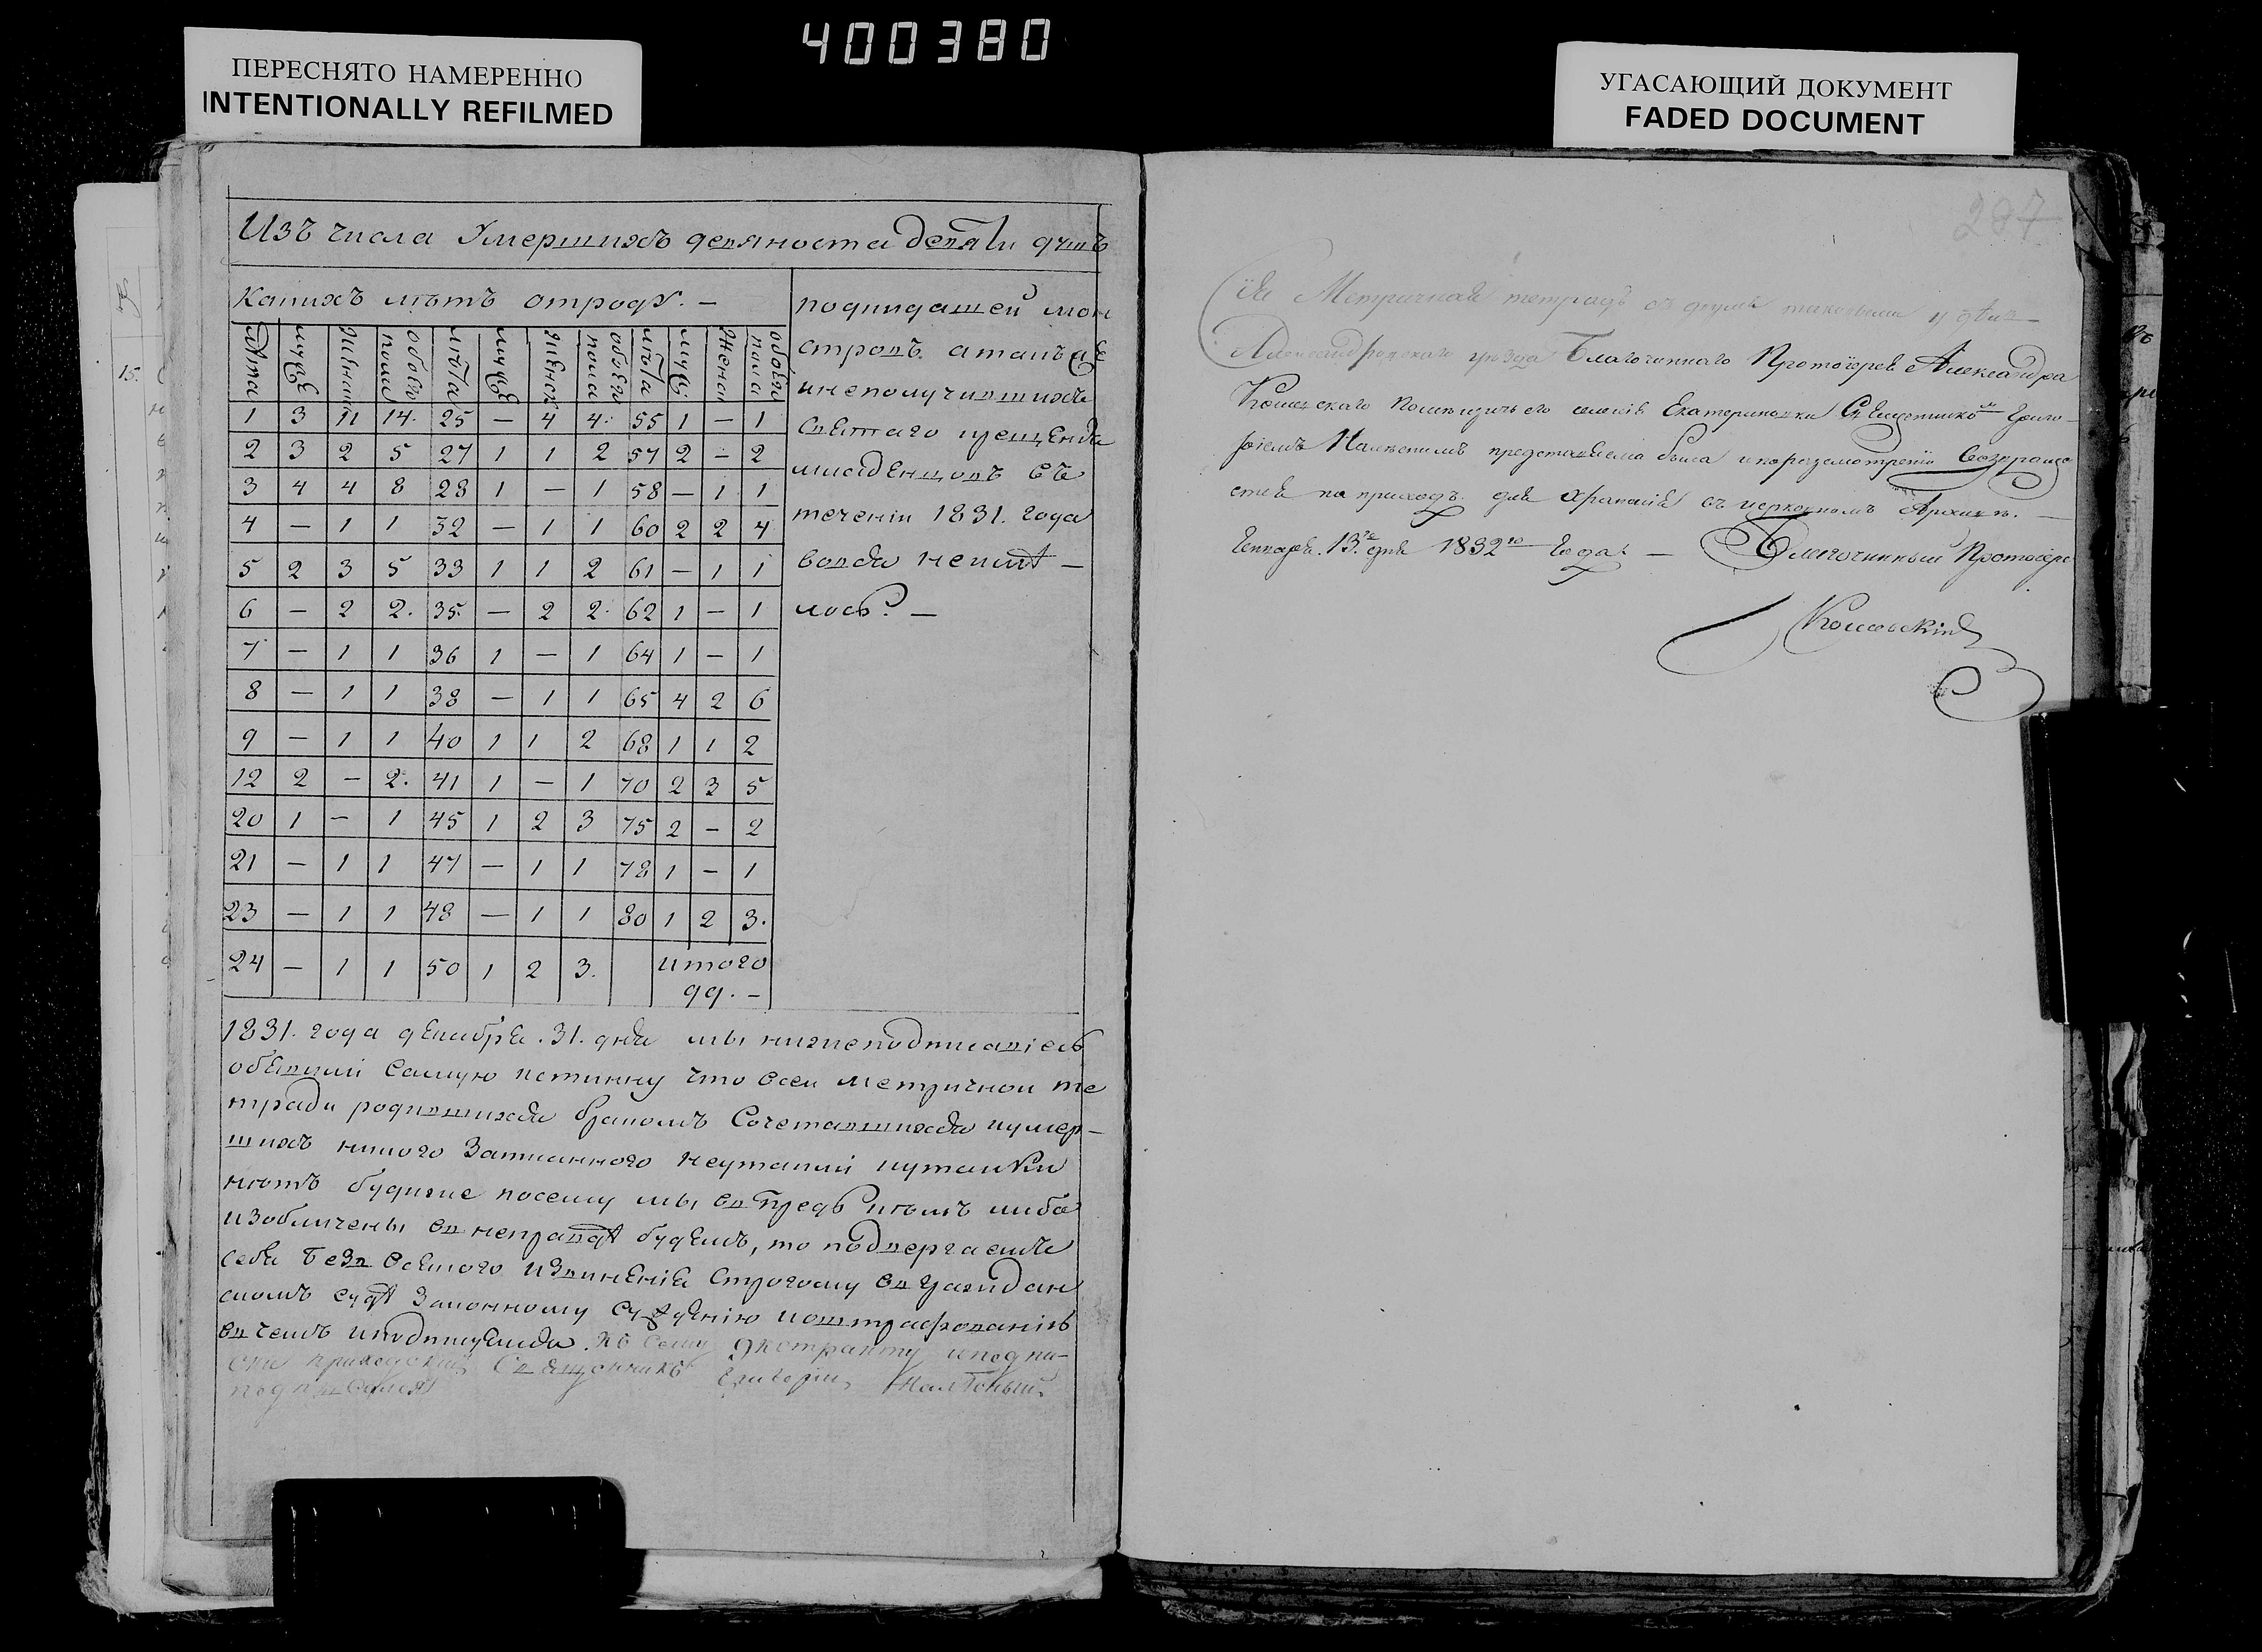 400380
ПЕРЕСНЯТО НАМЕРЕННО
INTENTIONALLY REFILMED
УГАСАЮЩИЙ ДОКУМЕНТ
FADED DOCUMENT
15.
Изъ числа Умершихъ девяноста девяти душъ
какихъ лѣтъ отроду. —
лѣта муже женска обоего пола лѣта муже женск обоего пола лѣта муж женск обоего пола
1 3 11 14. 25 — 4 4. 55 1 — 1
2 3 2 5 27 1 1 2 57 2 — 2
3 4 4 8 28 1 — 1 58 — 1 1
4 — 1 1 32 — 1 1 60 2 2 4
5 2 3 5 33 1 1 2 61 — 1 1
6 — 2 2. 35. — 2 2. 62 1 — 1
7 — 1 1 36 1 — 1 64 1 — 1
8 — 1 1 38 — 1 1 65 4 2 6
9 — 1 1 40 1 1 2 68 1 1 2
12 2 — 2. 41 1 — 1 70 2 3 5
20 1 — 1 45 1 2 3 75 2 — 2
21 — 1 1 47 — 1 1 78 1 — 1
23 — 1 1 48 — 1 1 80 1 2 3.
24 — 1 1 50 1 2 3. итого
99. —
подкидашей мон
стровъ. атакъ же
инеполучившихъ
Святаго крещенія
младенцовъ въ
теченіи 1831. года
вовся неимѣ —
лось. —
1831. года декабря. 31. дня мы нижеподписавіесь
объявили самую истинну что всей метричной те
тради родившихся бракомъ Сочетавшихся иумер —
шихъ никого Записанного неутаили иутайки
нѣтъ будиже посему мы впредь кѣмъ либо
изобличены внеправдѣ будемъ, то подвергаемъ
себя безъ всякого извиненія строгому вгражедан
скомъ судѣ Законному сужденію иоштрафованію
вчемъ иподписуемся. Ко сему экстракту иподпи-
ски приходскій Священникъ Григорій
подписался
297
Сія Метричная тетрадь съ двумя таковыми
Александровскаго уезда Благочиннаго Протоіерея Александра
его селенія Екатериновки Священникомъ Григо-
ріемъ представлена была и поразсмотреніи возвраща
ется на приходъ для храненія въ церковномъ Архивѣ. —
Генваря. 13. дня 1832го Года. — Благочинный Протоіерей